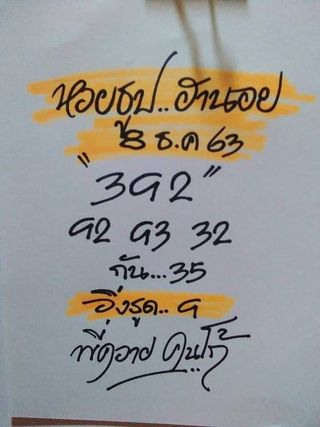 หวยธูป..ฮานอย
8 ธ.ค 63
"392"
92 93 32
กัน...35
อึ่งรูด.. 9
พี่ควาย คนโก้